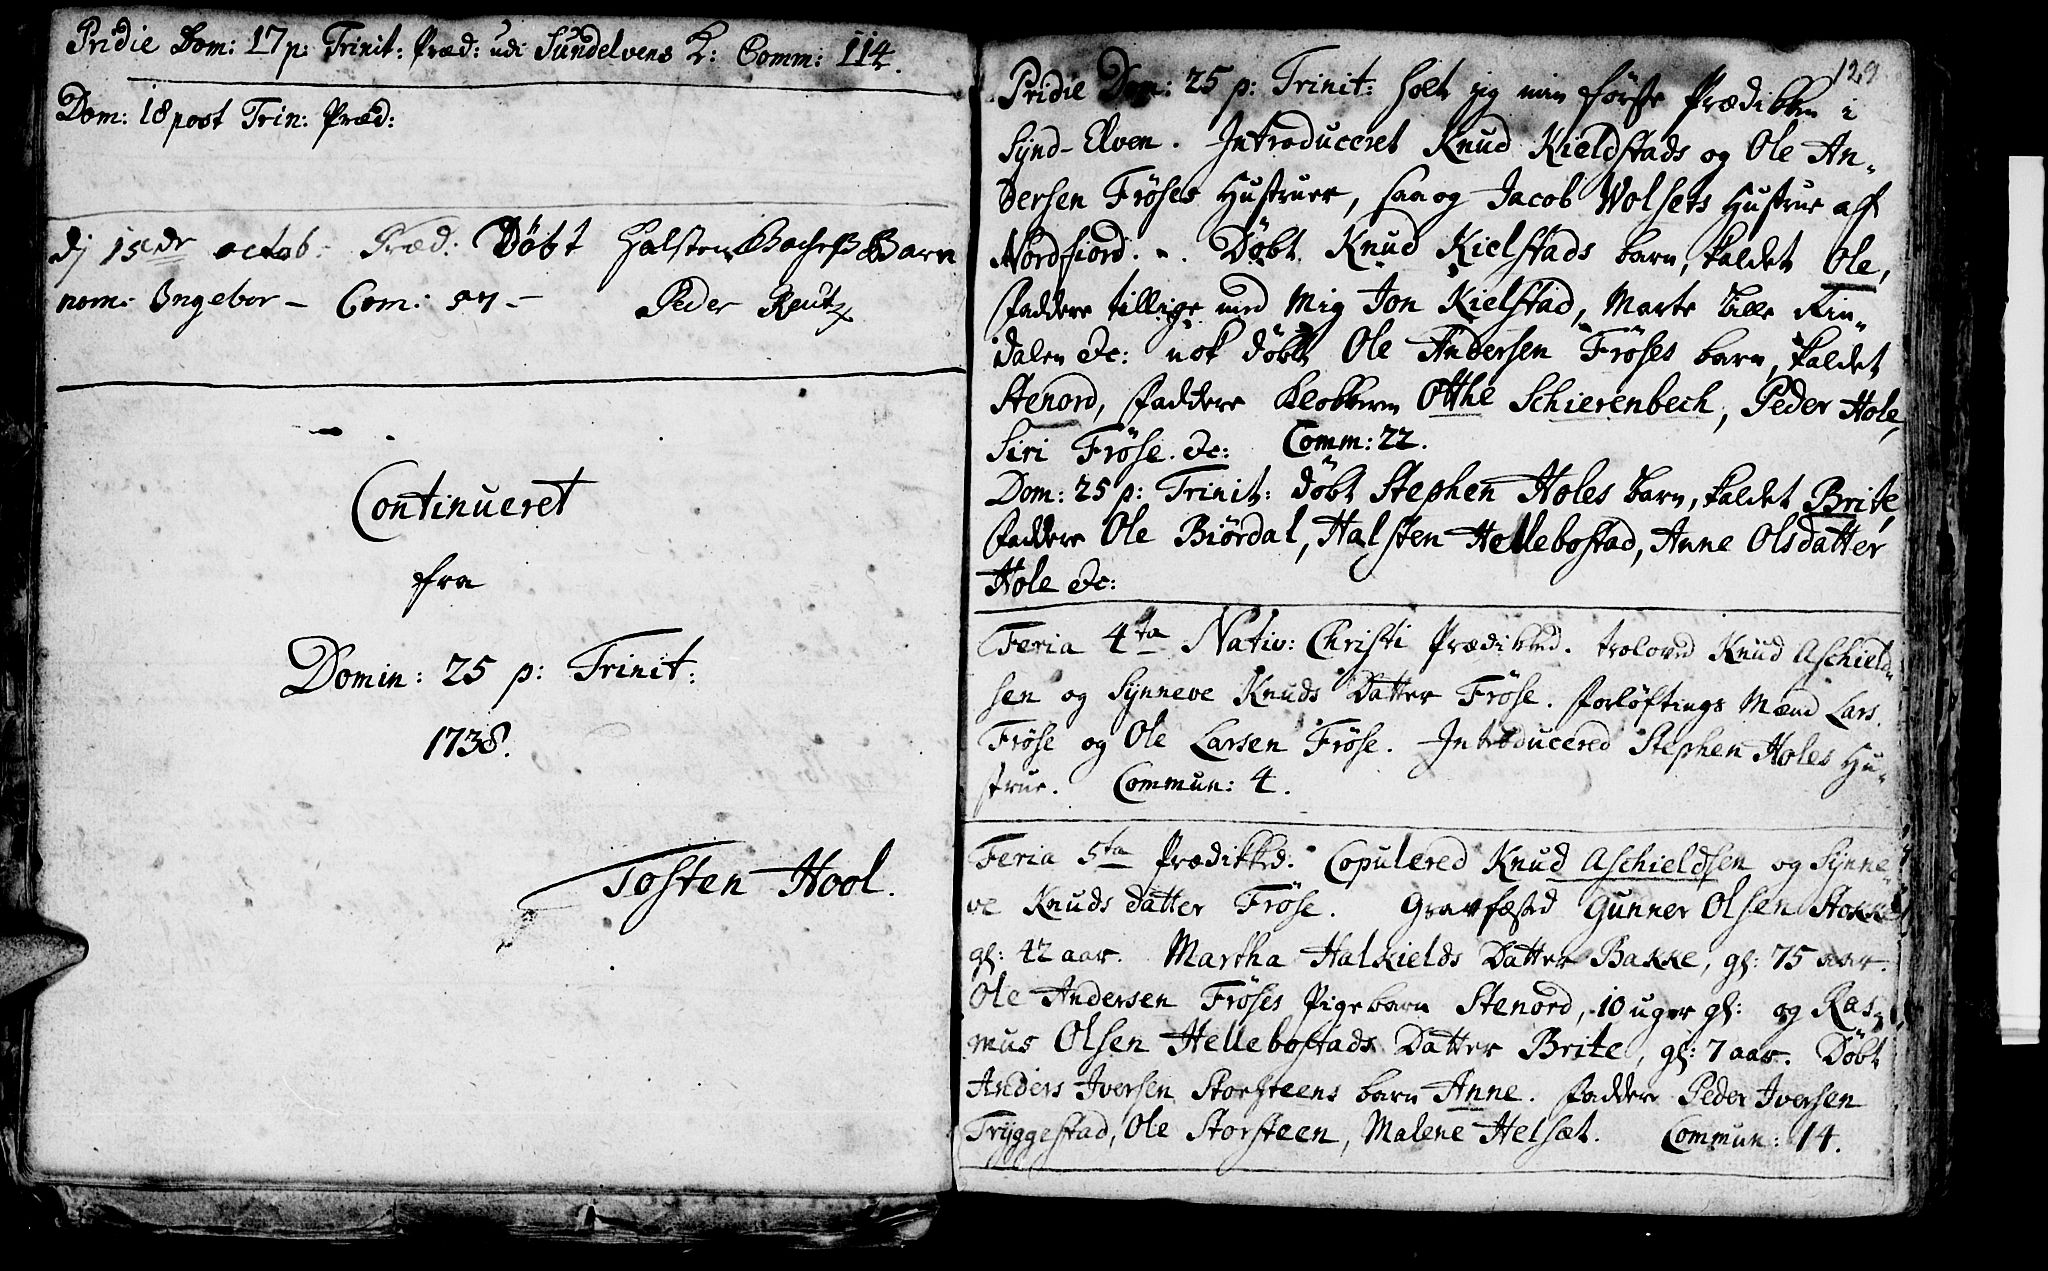 Pridie Dom: 17 p: Trinit: Præd: udi Sündelvens K: Comm: 114.
Dom: 18 post Trin: Præd:
dj 15de octob: Præd: Döbt Halsten Barn
nom: Ingebor – Com: 57 – Peder Reutz
Continueret
fra
Domin: 25 p: Trinit:
1738.
Tosten Hool.
129
Pridie Dom: 25 p: Trinit: holt jeg min förste Prædikken i
Synd-Elven. Introduceret Knud Kieldstads og Ole An-
dersen Fröses Hustruer, saa og Jacob Wolsets Hustrue af
Nordfiord. -. Döbt Knud Kielstads barn, kaldet Ole,
Faddere tillige med Mig Jon Kielstad, Marte Lille Rin-
dalen &c: nok döbt Ole Andersen Fröses barn, kaldet
Stenord, Faddere Klokkeren Otthe Schierenbech, Peder Hole,
Siri Fröse &c: Comm: 22.
Dom: 25 p: Trinit: döbt Stephen Holes barn, kaldet Brite,
Faddere Ole Biördal, Halsten Hellebostad, Anne Olsdatter
Hole &c:
Feria 4ta Nativ: Christi Prædikked. troloved Knud Aschield-
sen og Synneve Knuds Datter Fröse. Forlöftings Mænd Lars
Fröse og Ole Larsen Fröse. Introducered Stephen Holes Hu-
strue. Commun: 4.
Feria 5ta Prædikked. Copulered Knud Aschieldsen og Synne-
ve Knuds datter Fröse. Gravfæsted Gunner Olsen Stokke
gl: 42 aar. Martha Halkields Datter Bakke, gl: 75 aar.
Ole Andersen Fröses Pigebarn Stenord, 10 uger gl: og Ras-
mus Olsen Hellebostads Datter Brite, gl: 7 aar. Döbt
Anders Iversen Storsteens barn Anne. Faddere Peder Iversen
Tryggestad, Ole Storsteen, Malene Helsæt. Commun: 14.